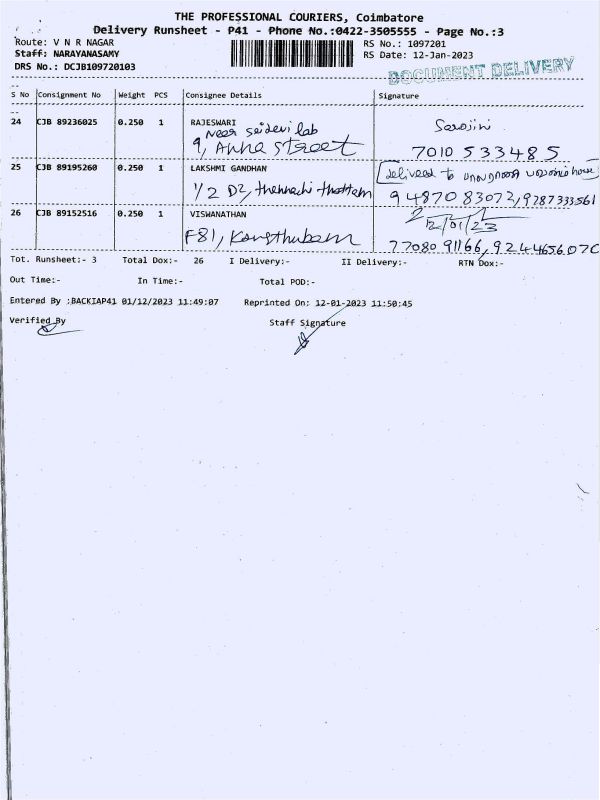 THE PROFESSIONAL COURIERS, Coimbatore
Delivery Runsheet - P41 - Phone No.:0422-3505555 - Page No.:3
Route: V N R NAGAR RS No.: 1097201
Staff: NARAYANASAMY RS Date: 12-Jan-2023
DRS No.: DCJB109720103
DOCUMENT DELIVERY
S No Consignment No Weight PCS Consignee Details Signature
24 CJB 89236025 0.250 1 RAJESWARI Sarojini
Near
9, Anna Street 7010 533485
25 CJB 89195260 0.250 1 LAKSHMI GANDHAN delivered to house
1/2 D2, thennachi thottam 94870 83072, 9787333561
26 CJB 89152516 0.250 1 VISWANATHAN 12/01/23
F81, Kousthubam 77080 91166, 9244656070
Tot. Runsheet:- 3 Total Dox:- 26 I Delivery:- II Delivery:- RTN Dox:-
Out Time:- In Time:- Total POD:-
Entered By :BACKIAP41 01/12/2023 11:49:07 Reprinted On: 12-01-2023 11:50:45
Verified By Staff Signature